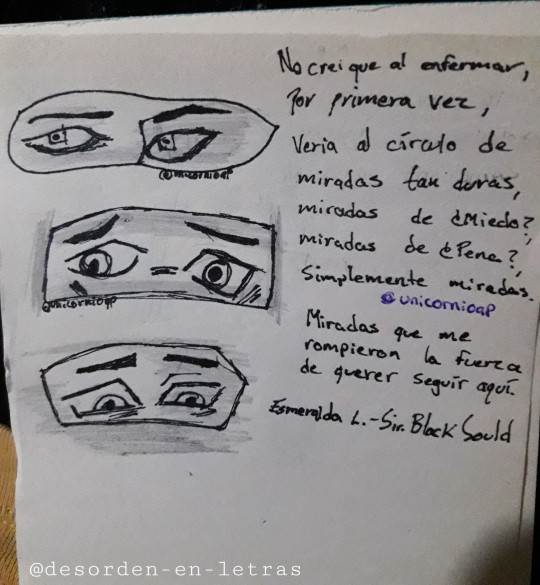 No crei que al enfermar,
Por primera vez,
Veria al círculo de
miradas tan duras,
miradas de ¿Miedo?,
miradas de ¿Pena?,
Simplemente miradas.
@unicornioap
Miradas que me
rompieron la fuerza
de querer seguir aquí.
Esmeralda L.-Sir. Black Sould
@unicornioap
@unicornioap
@desorden-en-letras